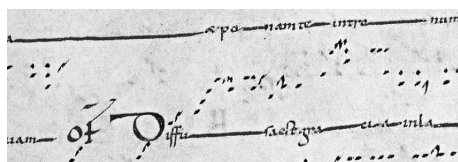 a &pa namte intro num
uam of Diffu saest gra cia inla